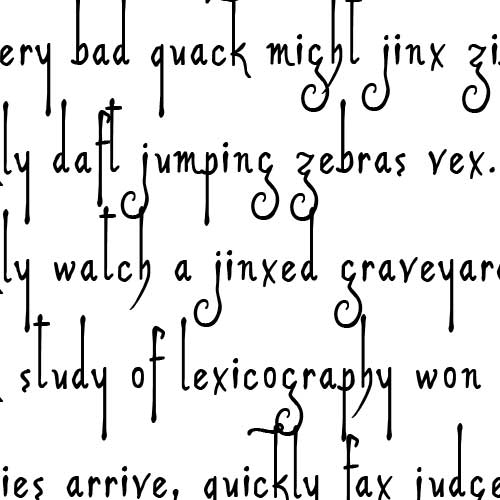 ery bad quack might jinx zi
ly daft jumping zebras vex.
ly watch a jinxed graveyar
study of lexicography won
ies arrive, quickly fax judge